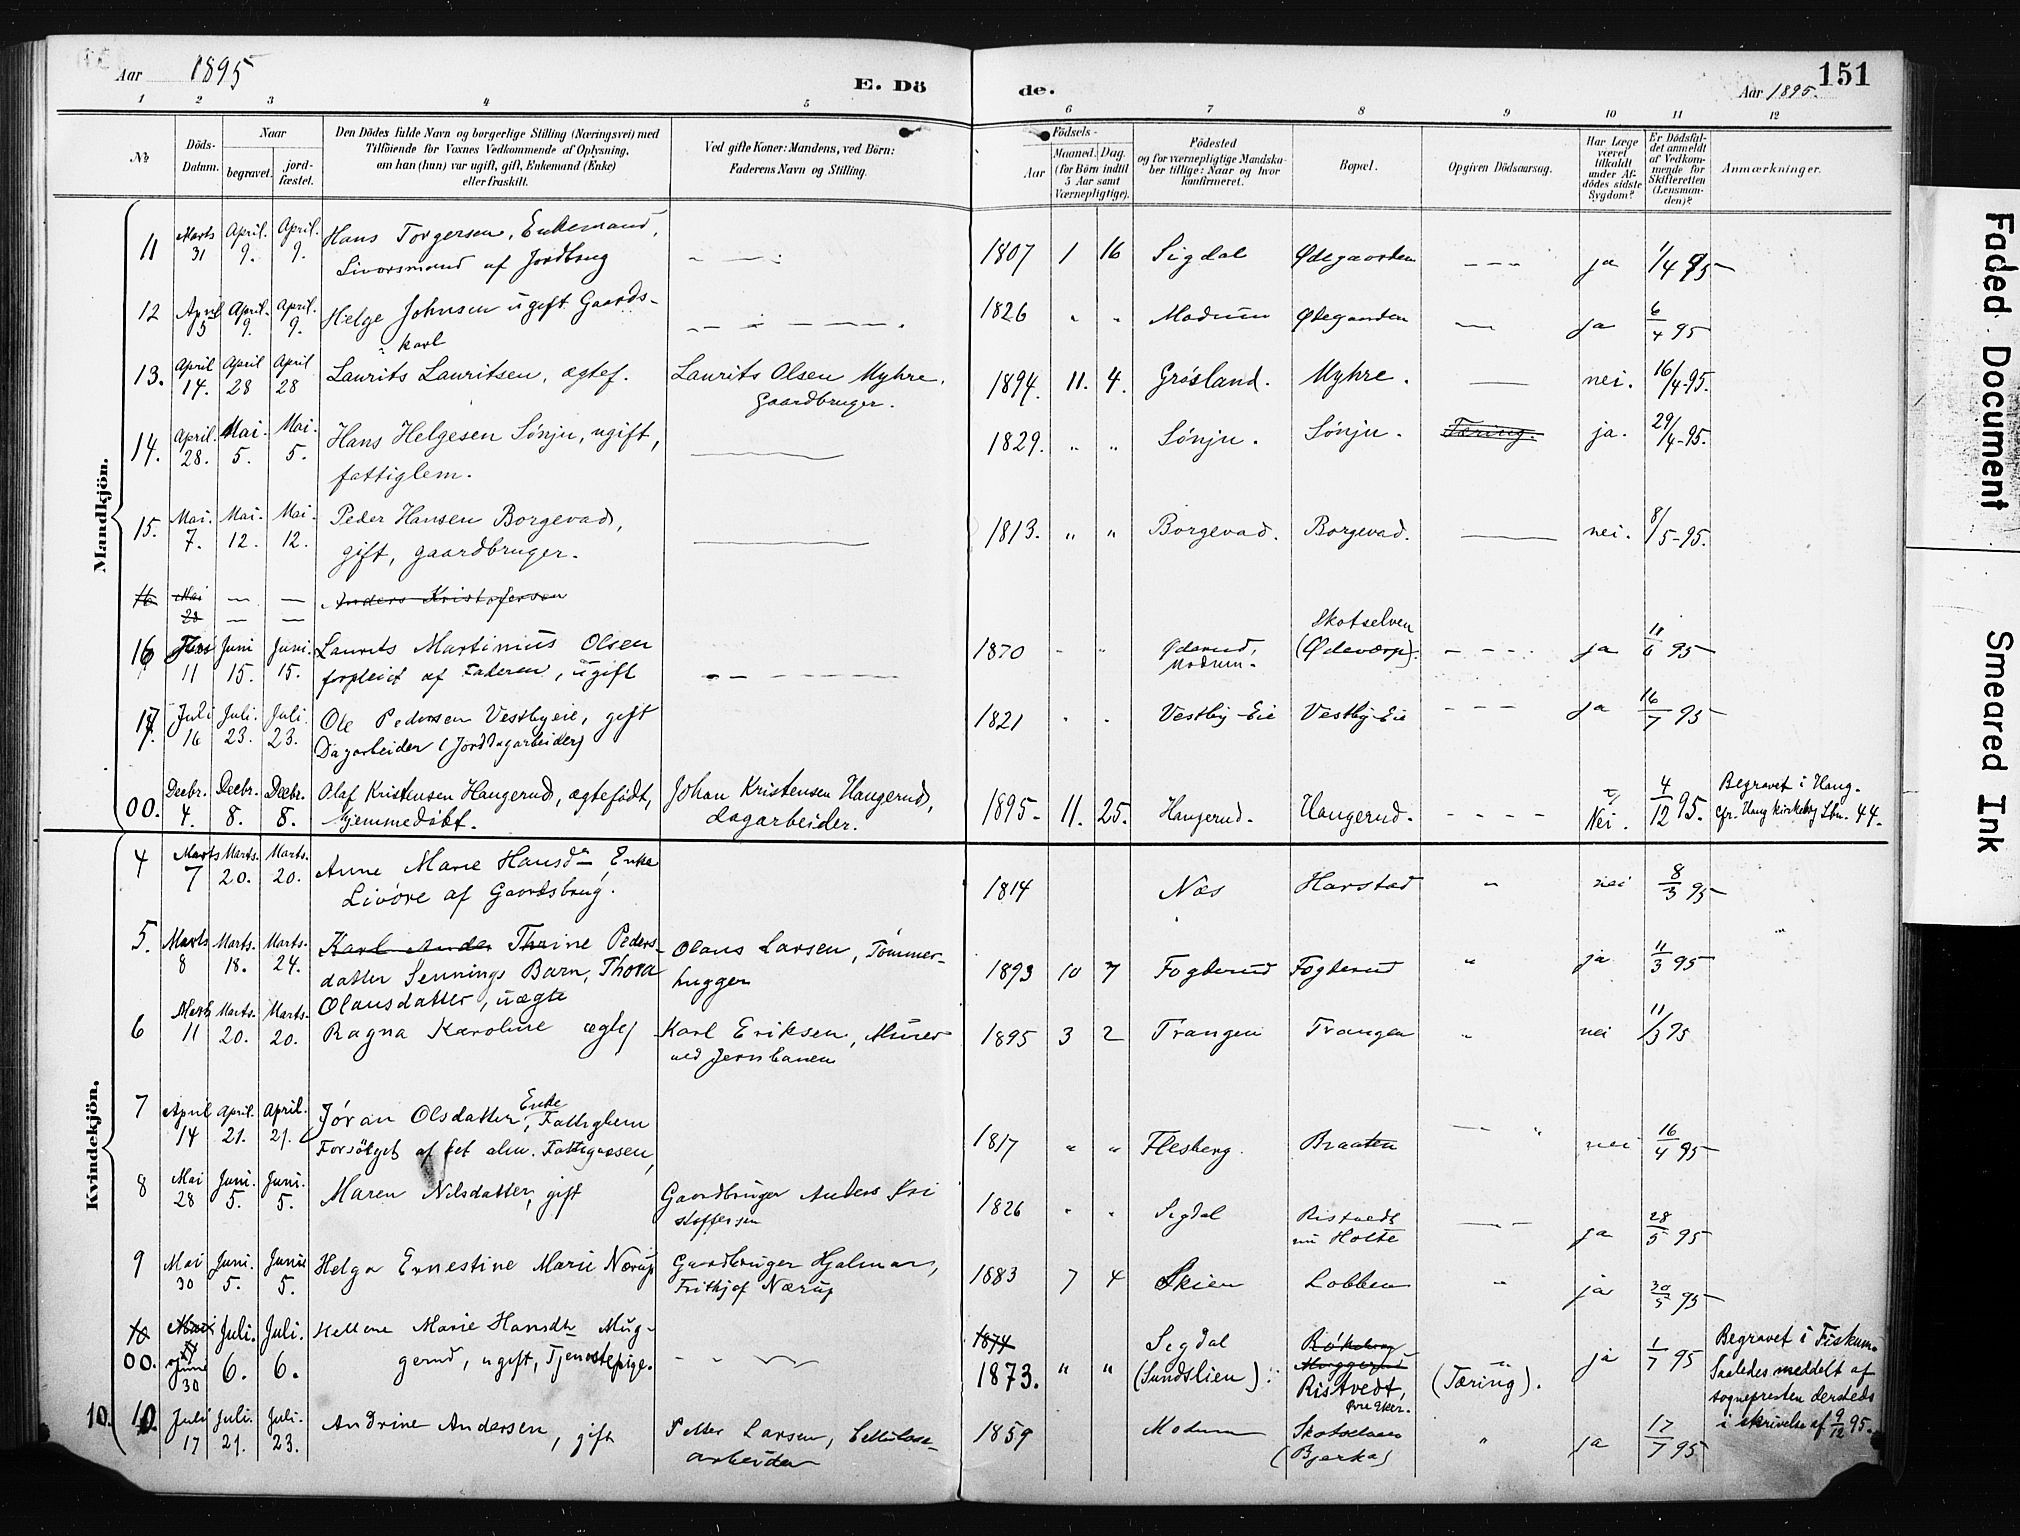 Aar 1895
E. Dö de.
Aar 1895.
151
1 2 3 4 5 6 7 8 9 10 11 12
No
Döds-
Datum.
Naar
begravet.
jord-
fæstet.
Den Dödes fulde Navn og borgerlige Stilling (Næringsvei) med
Tilföiende for Voxnes Vedkommende af Oplysning,
om han (hun) var ugift, gift, Enkemand (Enke)
eller fraskilt.
Ved gifte Koner: Mandens, ved Börn:
Faderens Navn og Stilling.
Födsels-
Aar
Maaned. Dag.
(for Börn indtil
5 Aar samt
Værnepligtige).
Födested
og for værnepligtige Mandska-
ber tillige: Naar og hvor
konfirmeret.
Bopæl.
Opgiven Dödsaarsag.
Har Læge
været
tilkaldt
under Af-
dödes sidste
Sygdom?
Er Dödsfal-
det anmeldt
af Vedkom-
mende for
Skifteretten
(Lensman-
den)?
Anmærkninger.
Mandkjön.
11 Marts 31 April. 9. April. 9. Hans Torgersen, Enkemand, 1807 1 16 Sigdal Ødegaarden - - - ja 1/4 95
Livorsmand af Jordbrug
12 April 5 April. 9. April. 9. Helge Johnsen ugift Gaards- 1826 " " Modum Ødegaarden — ja 6/4 95
karl
13. April 14. April 28 April 28 Laurits Lauritsen, ægtef. Laurits Olsen Myhre, 1894. 11. 4. Grøsland. Myhre. — nei. 16/4-95.
Gaardbruger.
14. April. 28. Mai. 5. Mai. 5. Hans Helgesen Sønju, ugift, 1829. " " Sønju. Sønju. Tæring. ja. 29/4-95.
fattiglem.
15. Mai. 7. Mai. 12. Mai. 12. Peder Hansen Borgevad, 1813. " " Borgevad. Borgevad. — nei. 8/5-95.
gift, gaardbruger.
16 Mai 28 — — Anders Kristofersen
16 Juni 11 Juni 15. Juni. 15. Laurits Martinius Olsen 1870 " " Modum. Skotselven - - - ja 11/6 95
forpleiet af Faderen, ugift
17. Juli 16 Juli. 23. Juli. 23. Ole Pedersen Vestbyeie, gift 1821 " " Vestby-Eie Vestby-Eie - - - ja 16/7 95
Dagarbeider (Jorddagarbeider)
00. Decbr. 4. Decbr. 8. Decbr. 8. Olaf Kristensen Haugerud, ægtefødt, Johan Kristensen Haugerud, 1895- 11. 25. Haugerud. Haugerud. - - - - Nei. 4/12 95. Begravet i Haug.
hjemmedøbt. Dagarbeider. cfr. Haug kirkebog Lbn. 44.
Kvindekjön.
4 Marts 7 Marts. 20. Marts. 20. Anne Marie Hansdr, Enke 1814 Næs Harstad " nei 8/3 95
Livøre af Gaardsbrug.
5. Marts 8 Marts. 18. Marts. 24. Karl Ander Thrine Peders- Olaus Larsen, Tømmer- 1893 10 7 Fogterud Fogterud " ja 11/3 95
datter Sennings Barn, Thora hugger
Olausdatter, uægte
6 Marts 11 Marts. 20. Marts. 20. Ragna Karoline ægte Karl Eriksen, Murer 1895 3 2 Trangen Trangen " nei 11/3 95
ved Jernbanen
7 April 14 April. 21. April. 21. Jøran Olsdatter, Enke Fattiglem 1817 " " Flesberg. Braaten — " nei 16/4 95
Forsørget af det alm. Fattigvæsen,
8 Mai 28 Juni. 5. Juni. 5. Maren Nilsdatter, gift Gaardbruger Anders Kri 1826 " " Sigdal Ristvedt — ja 28/5 95
stoffersen nu Holte
9 Mai 30 Juni. 5. Juni 5. Helga Ernestine Marie Nærup Gaardbruger Hjalmar, 1883 7 4 Skien Lobben " ja 30/5 95
Frithjof Nærup
10 Mai Juli. Juli. Hellene Marie Hansdtr Mug- 1874 Sigdal Muggerud ja 1/7 95 Begravet i Fiskum.
00. Juni 30 6. 6. gerud, ugift, Tjenestepige. 1873. " " (Sundslien) Ristvedt, (Tæring). Saaledes meddelt af
Øvre Eker. sognepresten dersteds
i skrivelse af 9/12 95.
10. 10. Juli 17 Juli. 21. Juli. 23. Andrine Andersen, gift Petter Larsen, Cellulose- 1859 Modum Skotselven " ja 17/7 95
arbeider (Bjerka)
Faded Document
Smeared Ink